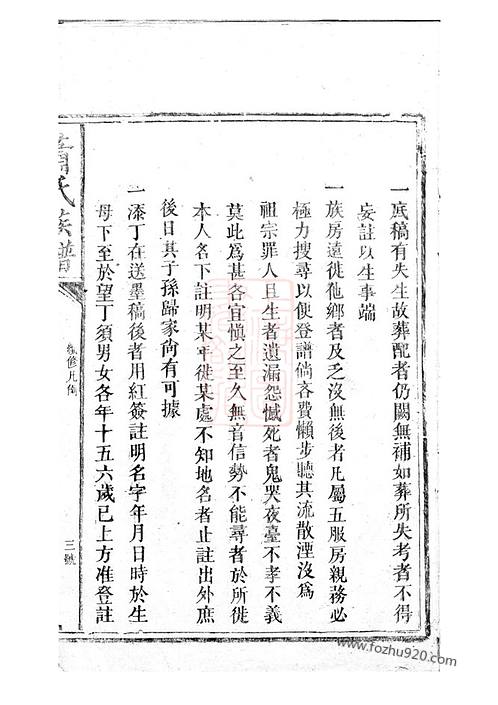 一底稿有失生故葬配者仍闕無補如葬所失考者不得
妄註以生事端
一族房遠徙他鄉者及乏沒無後者凡屬五服房親務必
極力搜尋以便登譜倘吝費懶步聽其流散湮沒為
祖宗罪人且生者遺漏怨憾死者鬼哭夜臺不孝不義
莫此為甚各宜愼之至久無音信勢不能尋者於所徙
本人名下註明某年徙某處不知地名者止註出外庶
後日其子孫歸家尚有可據
一添丁在送墨稿後者用紅簽註明名字年月日時於生
母下至於望丁須男女各年十五六歲已上方准登註
氏族譜
修凡例
三號
www.fozhu920.com